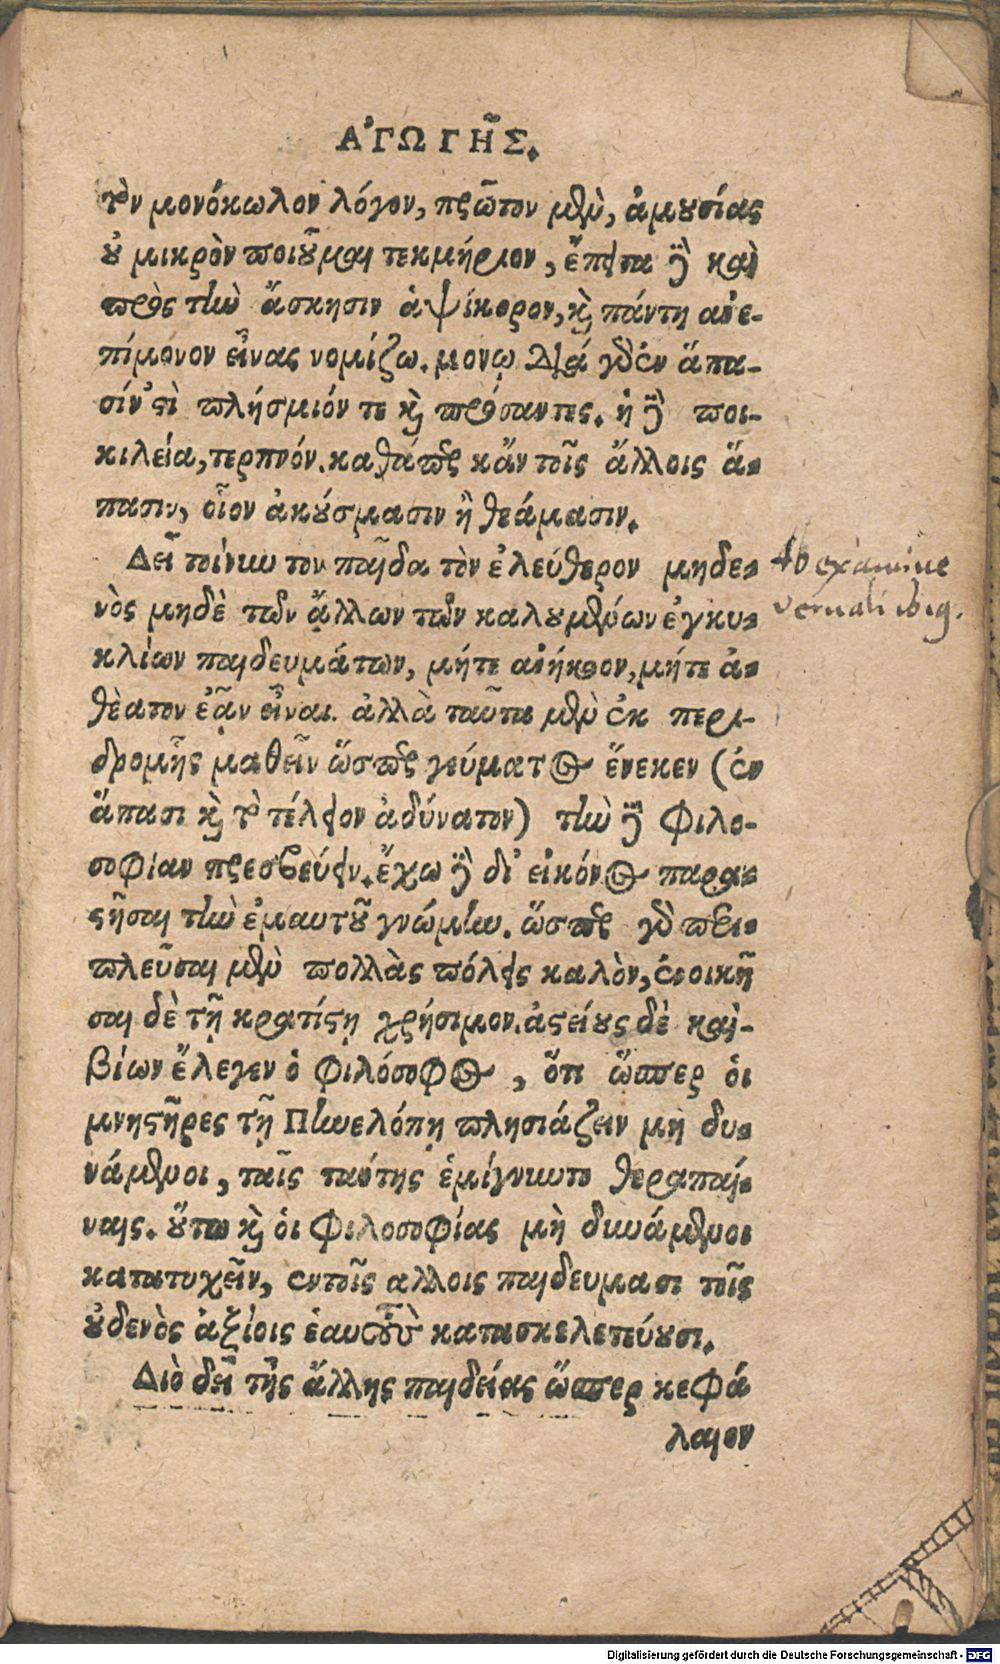 ΑʼΓΩΓΗ͂Σ.
τὸν μονόκωλον λόγον, πρῶτον μὲν, ἀμουσίας
οὐ μικρὸν ποιοῦμαι τεκμήριον, ἔπειτα δὲ καὶ
πρὸς τὴν ἄσκησιν ἁψίκορον, καὶ πάντη ἀνε-
πίμονον εἶνας νομίζω. μονῳδία γὰρ ἐν ἅπα-
σίν ἐστὶ πλήσμιόν τε καὶ πρόσαντες. ἡ δὲ ποι-
κιλεία, τερπνόν. καθάπερ κἄν τοῖς ἄλλοις ἅ-
πασιν, οἷον ἀκούσμασιν ἢ θεάμασιν.
Δεῖ τοίνυν τον παῖδα τὸν ἐλεύθερον μηδε-
νὸς μηδὲ τῶν ἄλλων τῶν καλουμένων ἐγκυ-
κλίων παιδευμάτων, μήτε ἀνήκοον, μήτε ἀ-
θέατον ἐᾶν εἶναι. ἀλλὰ ταῦτα μὲν ἐκ περι-
δρομῆς μαθεῖν ὥσπερ γεύματος ἕνεκεν (ἐν
ἅπασι καὶ τὸ τέλειον ἀδύνατον) τὴν δὲ φιλο-
σοφίαν πρεσβεύειν. ἔχω δὲ δι᾽ εἰκόνος παρα-
στῆσαι τὴν ἐμαυτοῦ γνώμην. ὥσπερ γὰρ περι-
πλεῦσαι μὲν πολλὰς πόλεις καλὸν, ἐνοικῆ
σαι δὲ τῇ κρατίστῃ χρήσιμον. ἀστείους δὲ καὶ-
βίων ἔλεγεν ὁ φιλόσοφος, ὅτι ὥσπερ ὁι
μνηστῆρες τῇ Πηνελόπῃ πλησιάζειν μὴ δυ-
νάμενοι, ταῖς ταύτης ἐμίγνυντο θεραπαί-
ναις. οὕτω καὶ ὁι φιλοσοφίας μὴ δυνάμενοι
κατατυχεῖν, ἐν τοῖς αλλοις παιδευμασι τοῖς
οὐδενὸς ἀξίοις ἑαυτοὺς κατασκελετεύουσι.
Διὸ δεῖ τῆς ἄλλης παιδείας ὥσπερ κεφά
λαιον
Ab examine
Digitalisierung gefördert durch die Deutsche Forschungsgemeinschaft - DFG